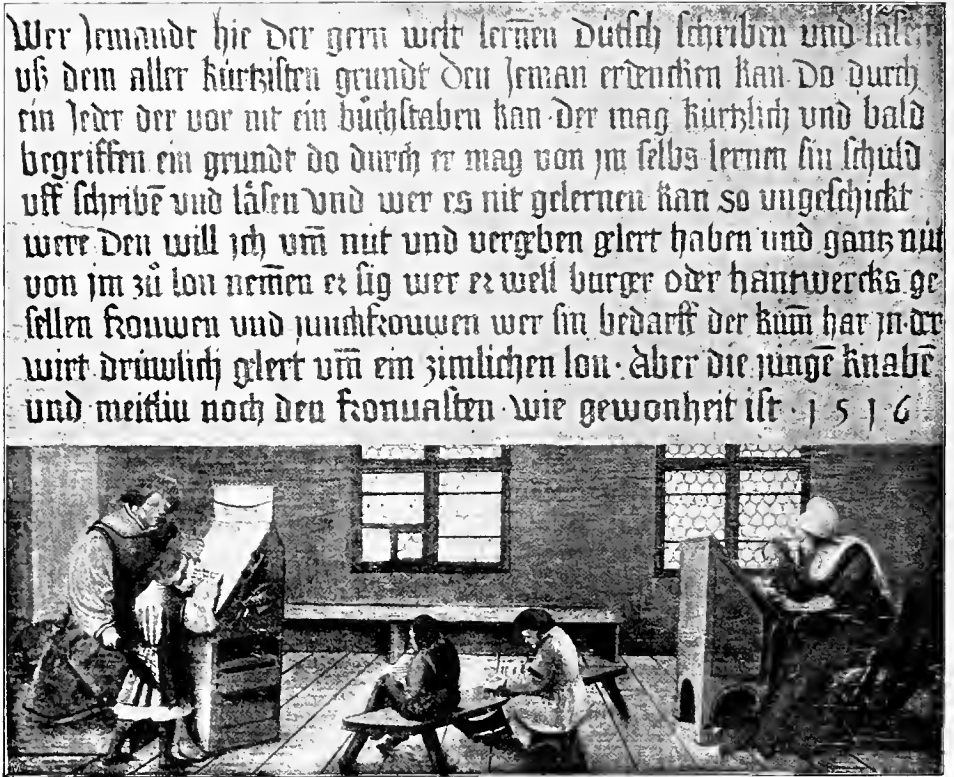 Wer Jemandt hie der gern welt lernen Dütsch schriben und läsen
uß dem aller kürtzisten grundt den Jeman erdencken kan Do durch
ein Jeder der vor nit ein büchstaben kan · der mag kürtzlich und bald
begriffen ein grundt do durch er mag von jm selbs lernen sin schuld
uff schribē und läsen Und wer es nit gelernen kan so ungeschickt
were Den will jch um̄ nüt und vergeben gelert haben und gantz nüt
von jm zů lon nem̄en er sig wer er well burger oder hantwercks ge
sellen frouwen und junckfrouwen wer sin bedarff der kum̄ har jn · der
wirt drüwlich gelert um̄ ein zimlichen lon · Aber die jungē knabē
und meitlin noch den fronuasten · wie gewonheit ist · 1 5 1 6